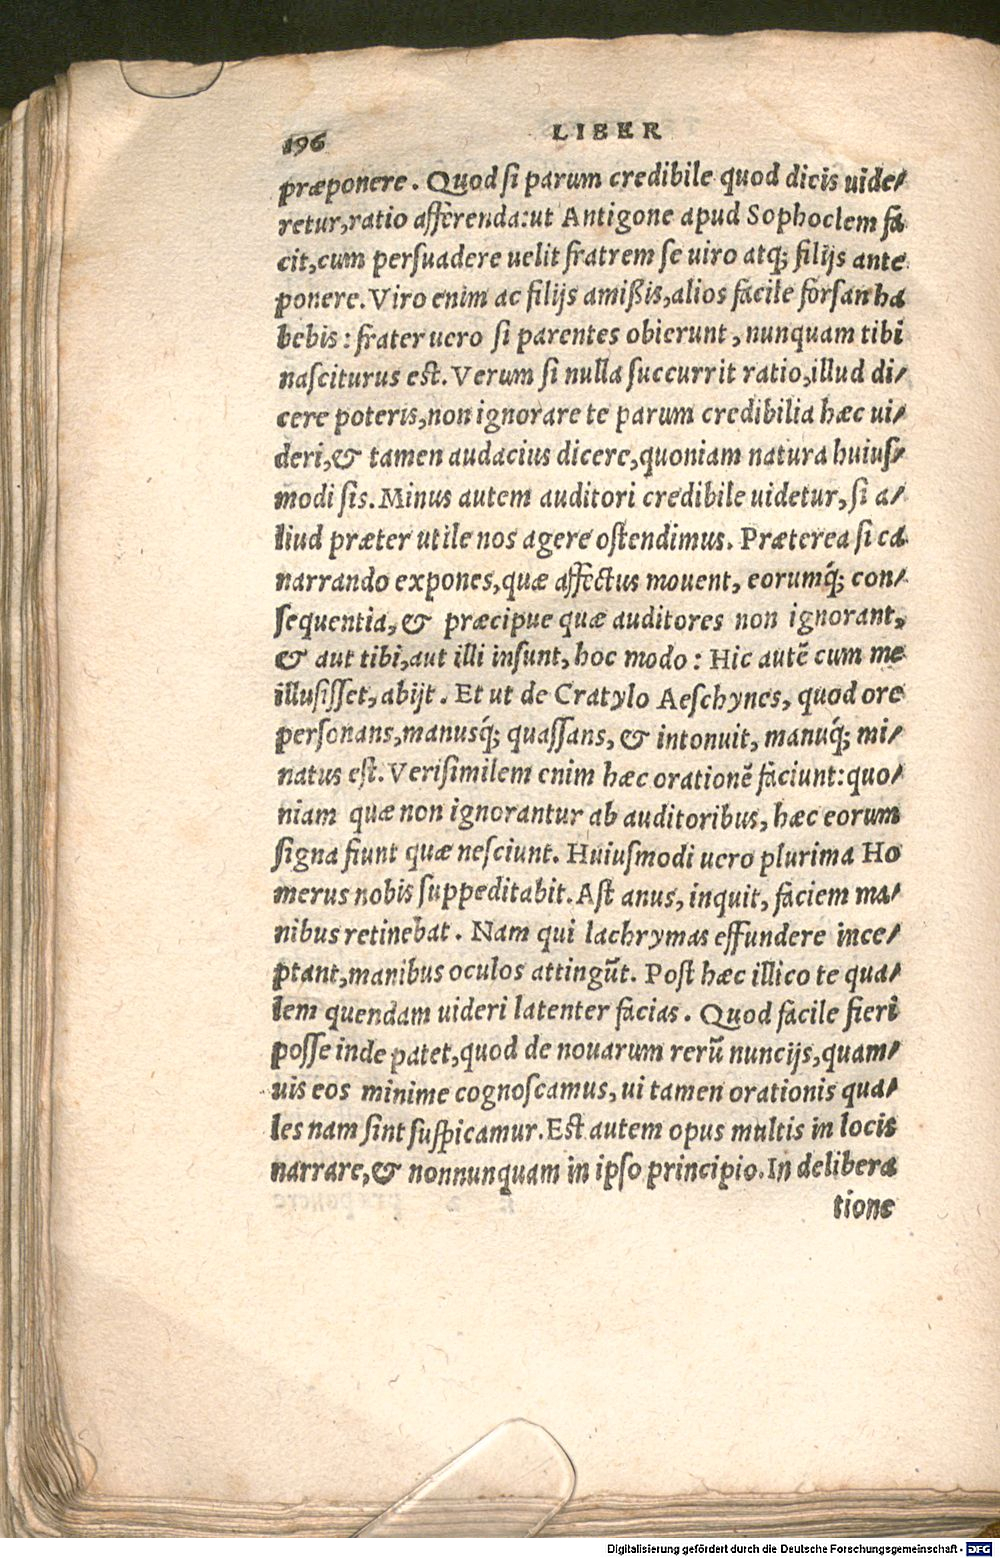 196 LIBER
præponere. Quod si parum credibile quod dicis uide/
retur, ratio afferenda: ut Antigone apud Sophoclem fa
cit, cum persuadere uelit fratrem se uiro atq; filijs ante
ponere. Viro enim ac filijs amißis, alios facile forsan ha
bebis: frater uero si parentes obierunt, nunquam tibi
nasciturus est. Verum si nulla succurrit ratio, illud di/
cere poteris, non ignorare te parum credibilia hæc ui/
deri, & tamen audacius dicere, quoniam natura huius/
modi sis. Minus autem auditori credibile uidetur, si a/
liud præter utile nos agere ostendimus. Præterea si ea
narrando expones, quæ affectus mouent, eorumq́; con/
sequentia, & præcipue quæ auditores non ignorant,
& aut tibi, aut illi insunt, hoc modo: Hic autē cum me
illusisset, abijt. Et ut de Cratylo Aeschynes, quod ore
personans, manusq́; quassans, & intonuit, manuq́; mi/
natus est. Verisimilem enim hæc orationē faciunt: quo/
niam quæ non ignorantur ab auditoribus, hæc eorum
signa fiunt quæ nesciunt. Huiusmodi uero plurima Ho
merus nobis suppeditabit. Ast anus, inquit, faciem ma/
nibus retinebat. Nam qui lachrymas effundere ince/
ptant, manibus oculos attingūt. Post hæc illico te qua/
lem quendam uideri latenter facias. Quod facile fieri
posse inde patet, quod de nouarum rerū nuncijs, quam/
uis eos minime cognoscamus, ui tamen orationis qua/
les nam sint suspicamur. Est autem opus multis in locis
narrare, & nonnunquam in ipso principio. In delibera
tione
Digitalisierung gefördert durch die Deutsche Forschungsgemeinschaft - DFG